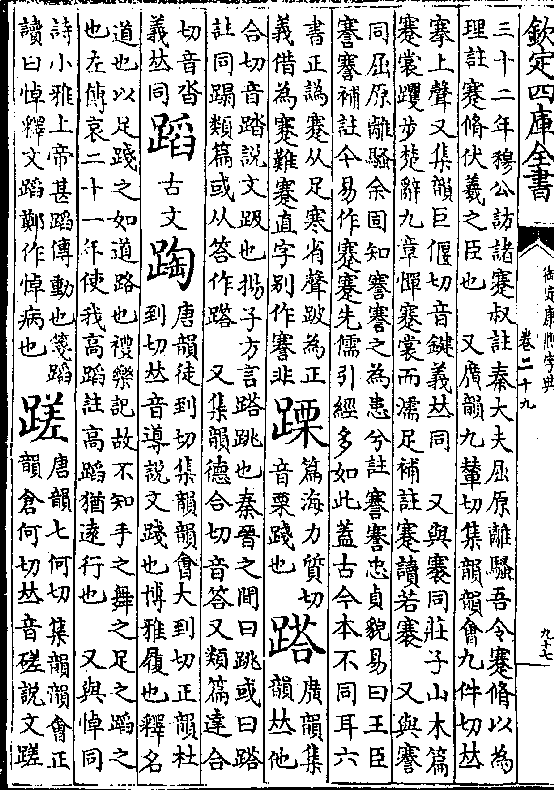 欽定四庫全書
御定康熙字典
卷二十九
三十二年穆公訪諸蹇叔註秦大夫屈原離騷吾令蹇脩以為
理註蹇脩伏羲之臣也　又廣韻九輦切集韻韻會九件切𠀤
搴上聲又集韻巨偃切音鍵義𠀤同　又與褰同莊子山木篇
蹇裳躩步楚辭九章憚蹇裳而濡足補註蹇讀若褰　又與謇
同屈原離騷余固知謇謇之為患兮註謇謇忠貞貌易曰王臣
謇謇補註今易作蹇蹇先儒引經多如此蓋古今本不同耳六
書正譌蹇从足寒省聲跛為正
義借為蹇難蹇直字別作謇非
䠏
篇海力質切
音栗踐也
㗳
廣韻集
韻𠀤他
合切音踏說文趿也揚子方言㗳跳也秦晉之間曰跳或曰㗳
註同蹋類篇或从答作㗳　又集韻德合切音答又類篇達合
切音沓
義𠀤同
蹈
古文
䠛
唐韻徒到切集韻韻會大到切正韻杜
到切𠀤音導說文踐也博雅履也釋名
道也以足踐之如道路也禮樂記故不知手之舞之足之蹈之
也左傳哀二十一年使我高蹈註高蹈猶遠行也　又與悼同
詩小雅上帝甚蹈傳動也箋蹈
讀曰悼釋文蹈鄭作悼病也
蹉
唐韻七何切集韻韻會正
韻倉何切𠀤音磋說文蹉